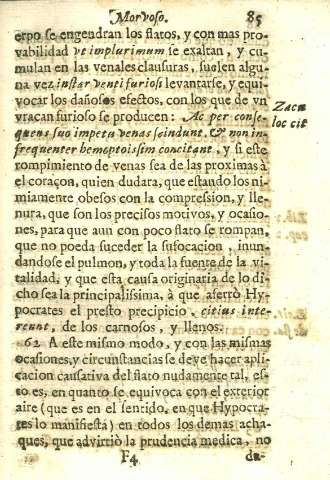 Morvoso. 85
erpo se engendran los flatos, y con mas pro-
vabilidad ut implurimum se exaltan, y cu-
mulan en las venales clausuras, suelen algu-
na vez instar venti furiosi levantarse, y equi-
vocar los dañosos efectos, con los que de vn
vracan furioso se producen: Ac per conse-
Zacu
quens suo impetu venas scindunt, & non in-
loc cit
frequenter hemoptoissim concitant, y si este
rompimiento de venas sea de las proximas à
el coraçon, quien dudara, que estando los ni-
miamente obesos con la compression, y lle-
nura, que son los precisos motivos, y ocasio-
nes, para que aun con poco flato se rompan,
que no pueda suceder la sufocacion, inun-
dandose el pulmon, y toda la fuente de la vi-
talidad, y que esta causa originaria de lo di-
cho sea la principalissima, à que aserrò Hy-
pocrates el presto precipicio, citius inte-
reunt, de los carnosos, y llenos.
62 A este mismo modo, y con las mismas
ocasiones, y circunstancias se deve hacer apli-
cacion causativa del flato nudamente tal, es-
to es, en quanto se equivoca con el exterior
aire (que es en el sentido, en que Hypocra-
tes lo manifiesta) en todos los demas acha-
ques, que advirtiò la prudencia medica, no
F4 da-